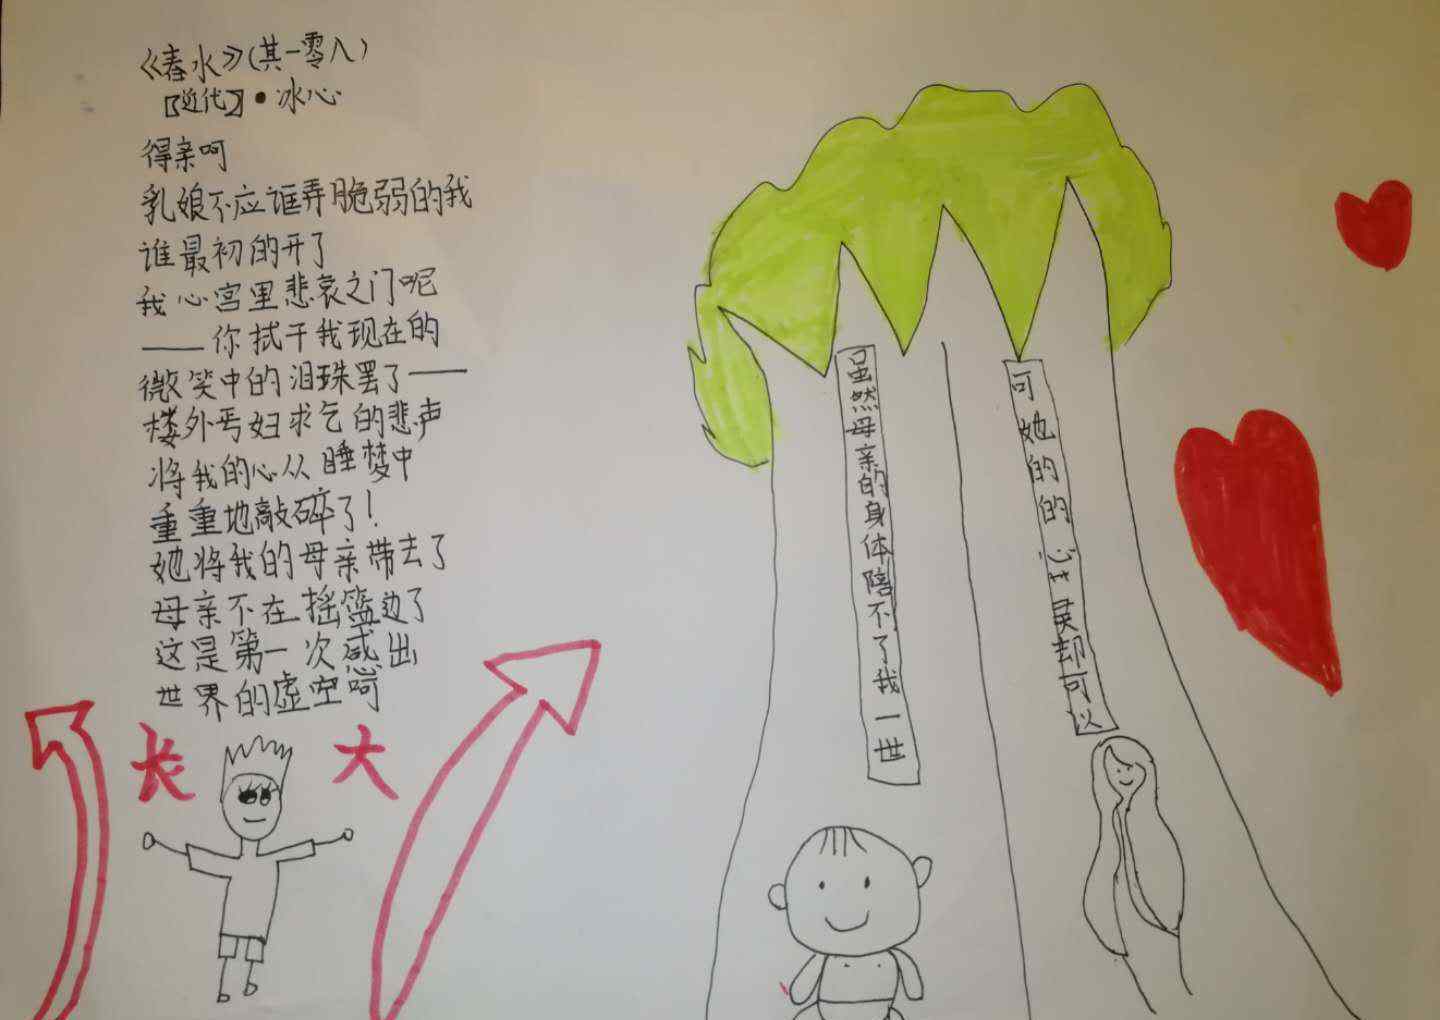 《春水》(其一零八)
〖近代〗•冰心
得亲呵
乳娘不应诓弄脆弱的我
谁最初的开了
我心宫里悲哀之门呢
——你拭干我现在的
微笑中的泪珠罢了——
楼外丐妇求乞的悲声
将我的心从睡梦中
重重地敲碎了!
她将我的母亲带去了
母亲不在摇篮边了
这是第一次感出
世界的虚空呵
长大
虽然母亲的身体陪不了我一世
可她的的心灵却可以